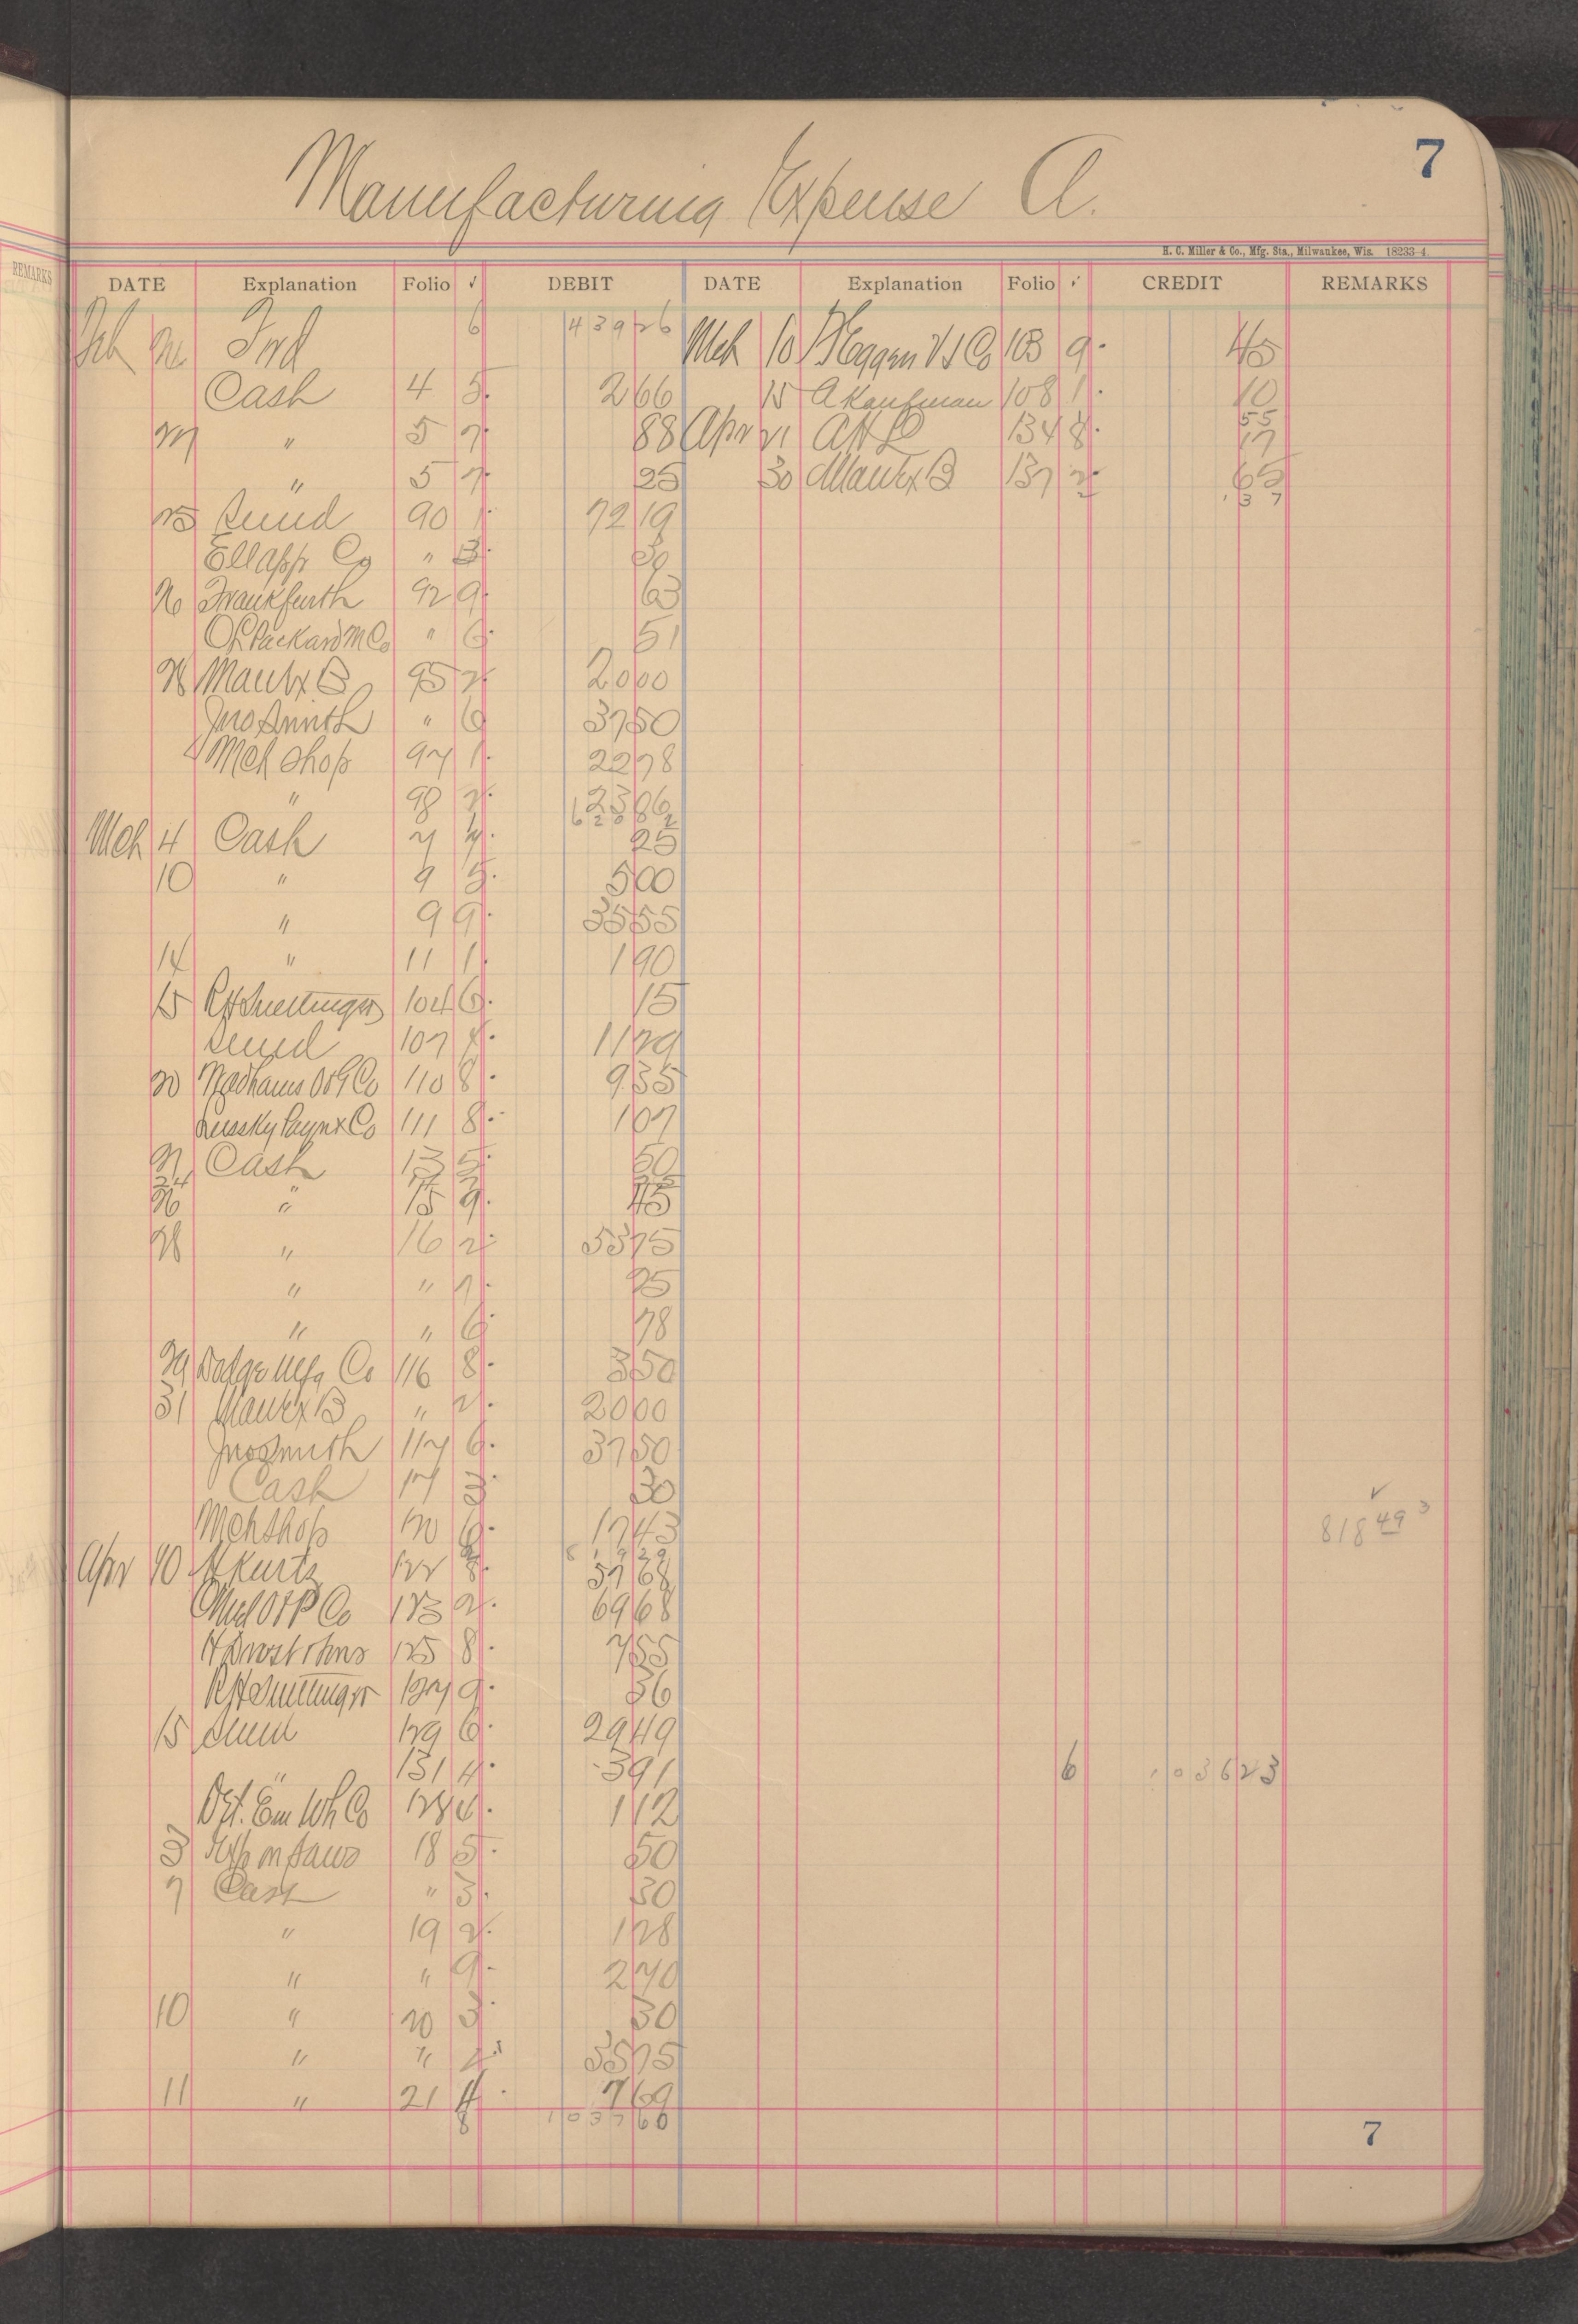 7
Manufacturing Expense A.
H. C. Miller & Co., Mfg. Sta., Milwaukee, Wis. 18233-4
REMARKS
DATE Explanation Folio ✓ DEBIT DATE Explanation Folio ✓ CREDIT REMARKS
Feb Fwd 6 439 26 Mch 10 Co 103 9 45
Cash 4 5 2 66 15 A Kaufman 108 1 10
" 5 7 88 Apr 21 134 8 17
55
" 5 7 25 30 B 137 2 65
1 37
25 Sund 90 1 72 19
Ell App Co " 3 30
26 Frankfurth 92 9 63
Packard M Co " 6 51
28 B 95 2 20 00
Jno Smith " 6 37 50
Mch Shop 97 1 22 78
" 98 2 23 86
620 82
Mch 4 Cash 7 7 25
10 " 9 5 5 00
" 9 9 35 55
14 " 11 1 1 90
15 104 6 15
Sund 107 11 29
20 Co 110 8 9 35
Co 111 8 1 07
21 Cash 13 5 50
24
26 " 15 9 45
28 " 16 2 53 75
" " 7 25
" " 6 78
29 Dodge Mfg Co 116 8 3 50
31 B " 2 20 00
Jno Smith 117 6 37 50
Cash 17 3 30
818 49 3
Mch Shop 120 6 17 43
819 29
Apr 10 Kurtz 122 8 57 68
Co 123 2 69 68
125 8 7 55
127 9 36
15 Sund 129 6 29 49
" 131 4 3 91
6 1036 23
Det. Em Wh Co 128 4 1 12
3 Saws 18 5 50
7 Cash " 3 30
" 19 2 1 28
" " 9 2 70
10 " 20 3 30
" " 2 35 75
11 " 21 4 7 69
8 1037 60
7